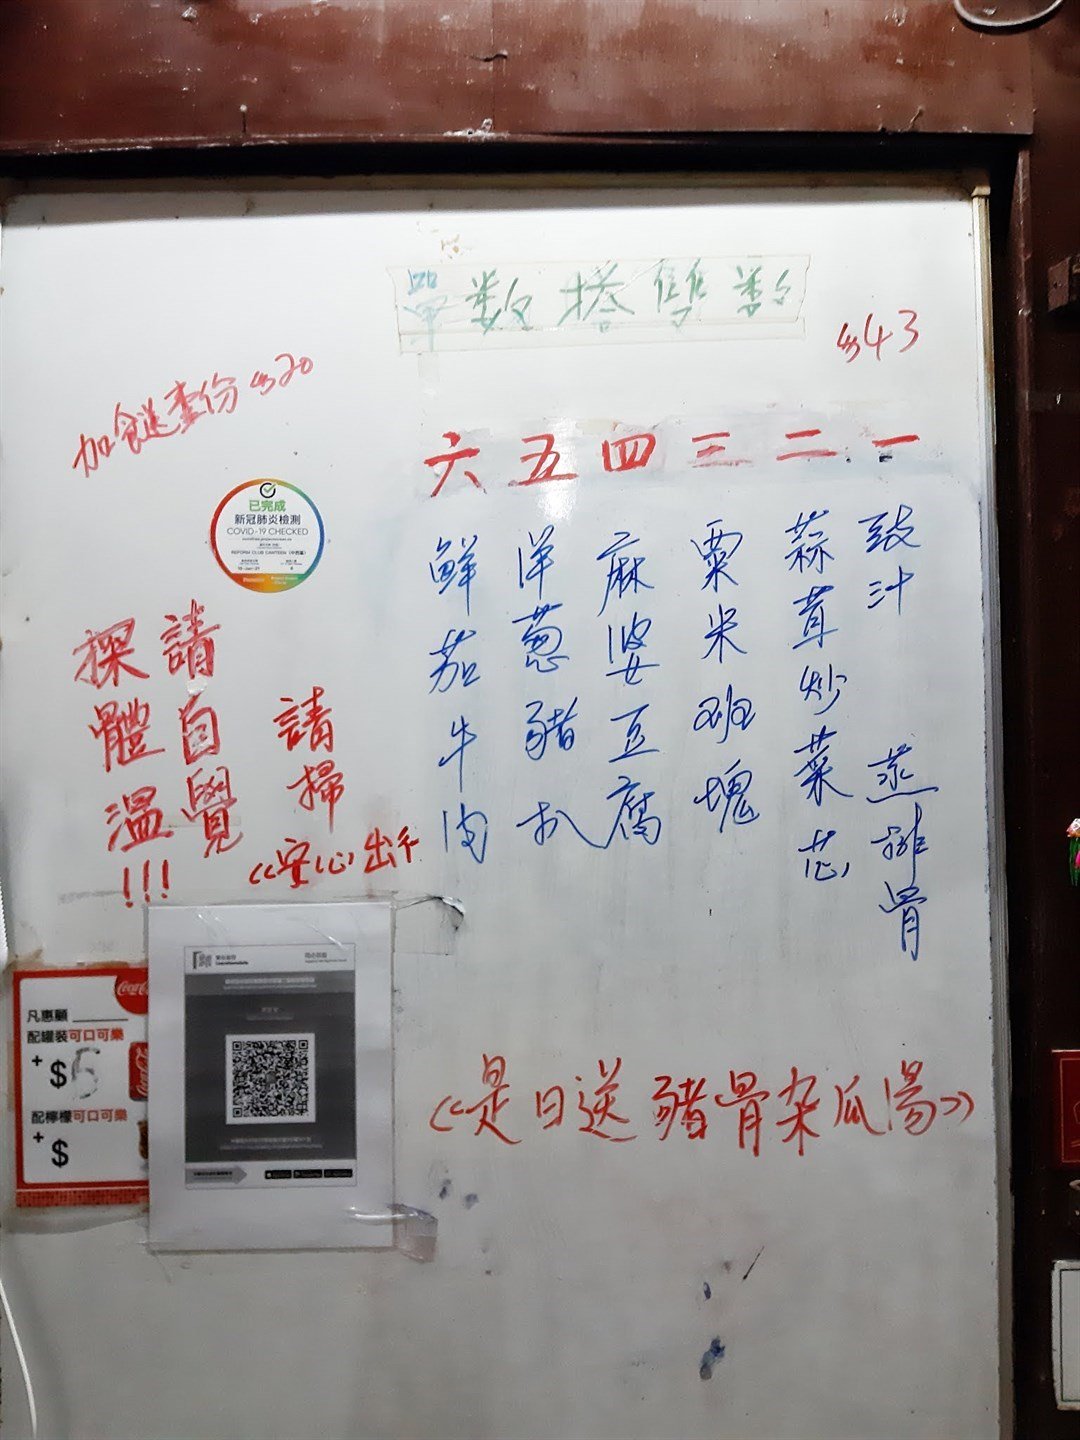 單數搭雙數
$43
加餸壹份 $20
一 豉汁蒸排骨
二 蒜茸炒菜芯
三 粟米班塊
四 麻婆豆腐
五 洋葱豬扒
六 鮮茄牛肉
已完成
新冠肺炎檢測
COVID-19 CHECKED
REFORM CLUB CANTEEN
請自覺
探體溫!!!
請掃
《安心出行
《是日送豬骨杂瓜湯》
Coca-Cola
凡惠顧
配罐裝可口可樂
+$5
配檸檬可口可樂
+$